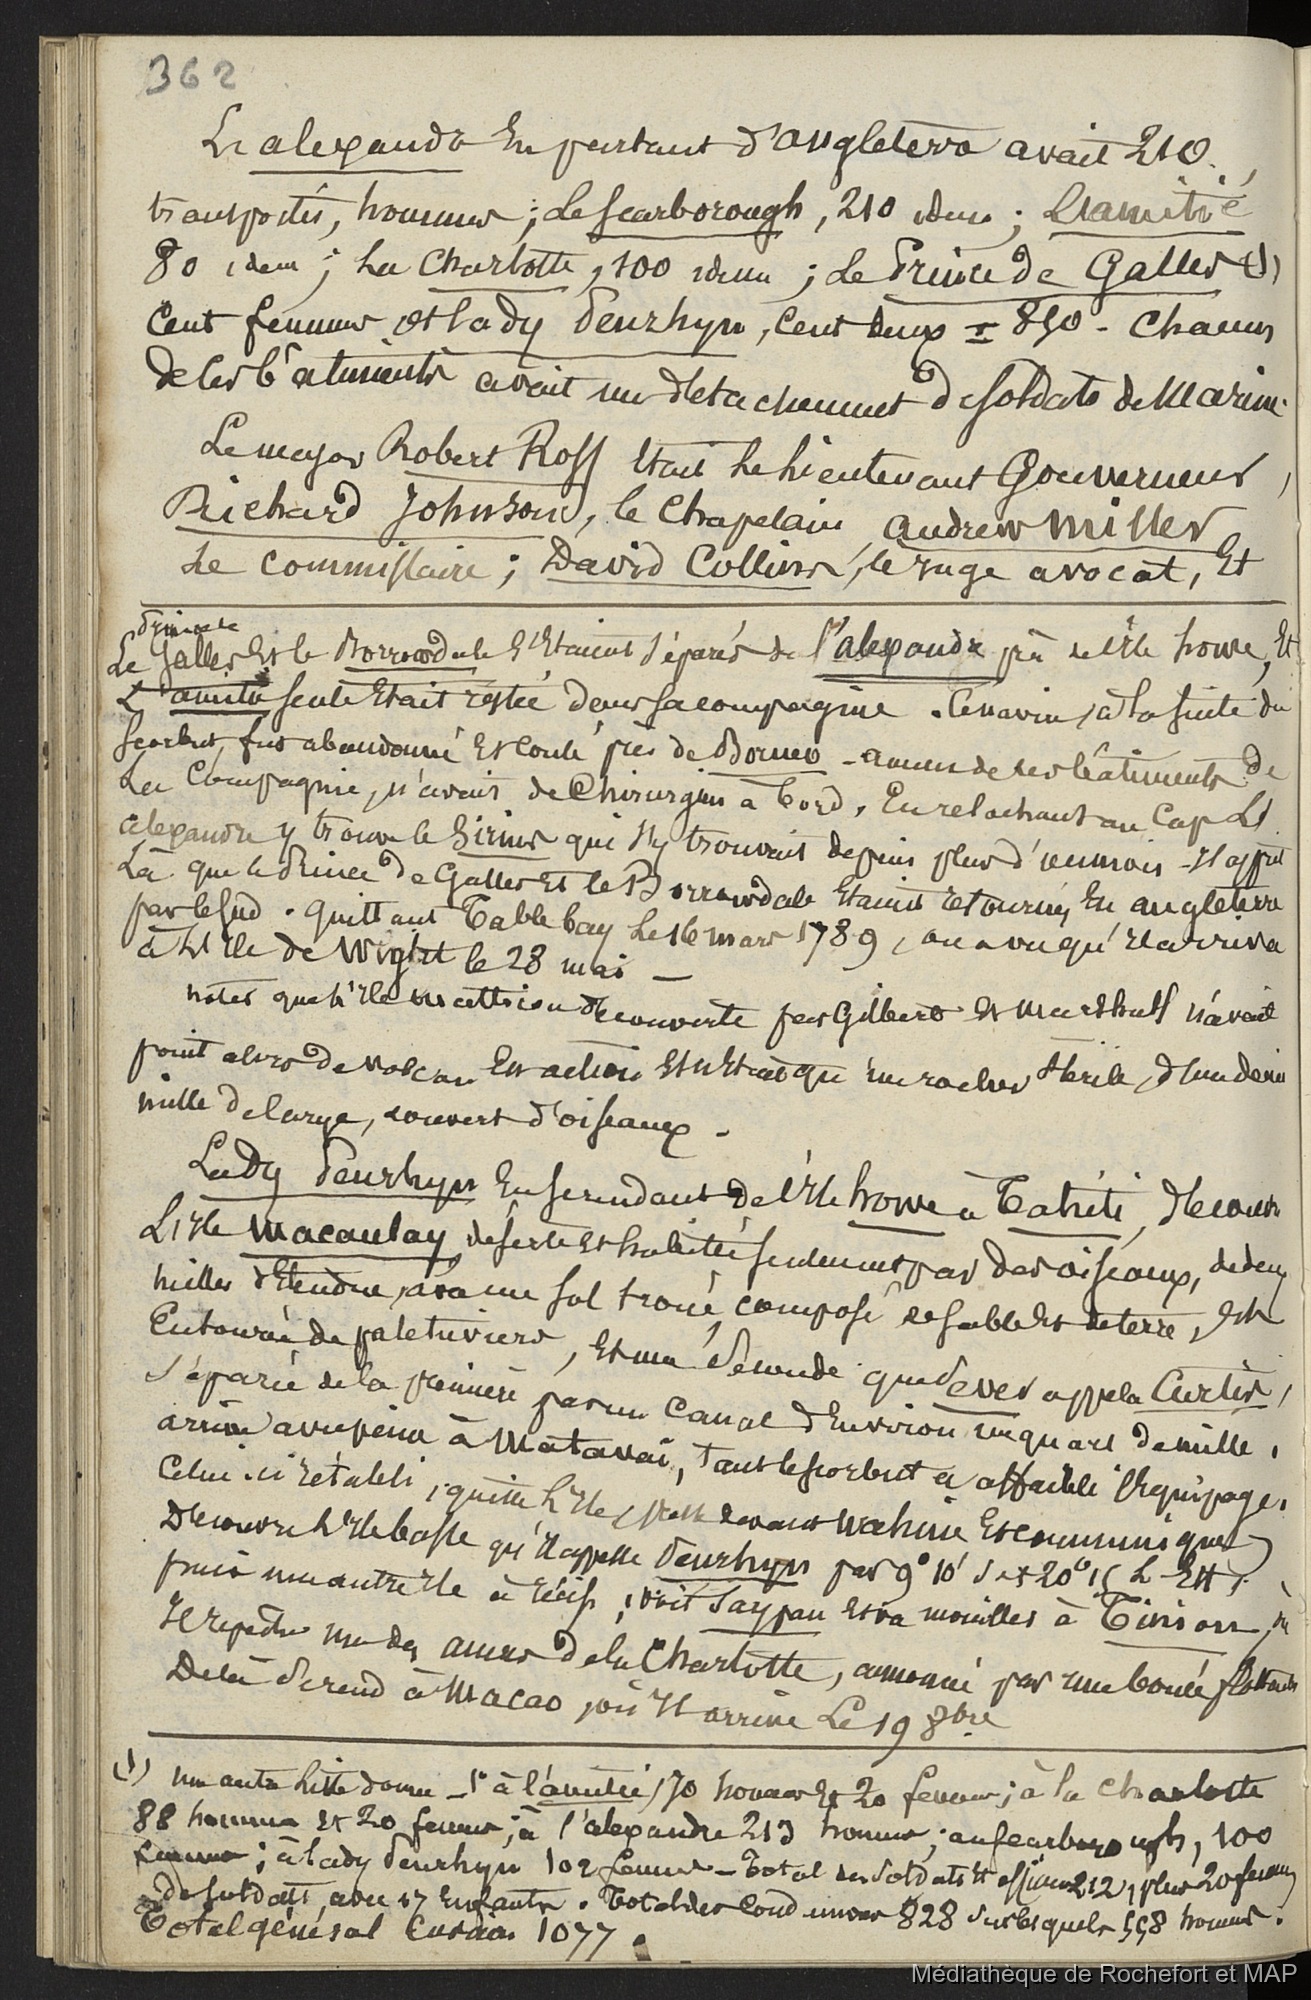 362
Le alexandre En partant d'angleterre avait 210
transportés, hommes ; Le Scarborough, 210 idem ; L'amitié
80 idem ; La Charlotte, 100 idem ; Le Prince de Galles (1)
Cent femmes et Lady Penrhyn, Cent deux = 850 - Chacun
de ces bâtiments avait un détachement de soldats de Marine.
Le major Robert Ross Etait Le Lieutenant Gouverneur,
Richard Johnson, le Chapelain, andrew Miller
Le commissaire ; David Collins, le juge avocat, Et
Prince de
Le Galles Et le Borrowdale S'Etaient séparés de l'alexandre près de l'île howe, Et
L'amitié seule Etait restée dans sa compagnie. Ce navire, à la suite du
Scorbut, fut abandonné Et coulé près de Borneo - aucun de ces bâtiments de
La Compagnie, n'avait de Chirurgien à bord. En relachant au Cap Le
alexandre y trouve le Sirius qui s'y trouvait depuis plus d'un mois - Il apprit
Là que le Prince de Galles Et le Borrowdale Etaient retournés En angleterre
par le sud. quittant Table bay Le 16 mars 1789, on a vu qu'il arriva
à L'île de Wight le 28 mai —
notez que L'île Matthieu découverte par Gilbert Et Marshall n'avait
point alors de volcan En action Et n'Etait qu'un rocher stérile, d'un demi
mille de large, couvert d'oiseaux.
Lady Penrhyn En se rendant de l'île howe à Tahiti, découvre
L'île Macaulay, déserte Et habitée seulement par des oiseaux, de deux
milles d'étendue, a un sol troué, composé de sable Et de terre, Est
Entourée de palétuviers, Et une seconde que Sever appela Curtis,
Séparée de la première par un Canal d'Environ un quart de mille,
arrive avec peine à Matavai, tant le scorbut a affaibli l'Equipage.
Celui-ci rétabli, quitte L'île, devant Wahine Et communique,
Découvre L'île basse qu'il appelle Penrhyn par 9° 10' S Et 20° 15 L. Est,
puis une autre île à récif, voit Saypan Et va mouiller à Tinian, où
Il repêche une des ancres de la Charlotte, annoncée par une bouée flottante
De là se rend à Macao, où Il arrive Le 19 8bre
(1) une autre liste donne - 1° à l'amitié, 70 hommes Et 20 femmes ; à la Charlotte
88 hommes Et 20 femmes ; à l'alexandre 213 hommes ; au scarborough, 100
femmes ; à lady Penrhyn 102 femmes - Total des soldats Et officiers 212, plus 20 femmes
de soldats, avec 17 Enfants. Total des condamnés 828 sur lesquels 558 hommes.
Total général Environ 1077.
Médiathèque de Rochefort et MAP